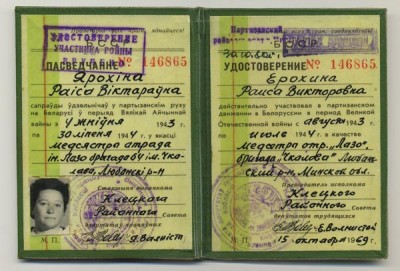 УДОСТОВЕРЕНИЕ
УЧАСТНИКА ВОЙНЫ
БССР
ПАСВЕДЧАННЕ № 146865
Ярохіна
Раіса Віктараўна
сапраўды ўдзельнічаў у партызанскім руху
на Беларусі ў перыяд Вялікай Айчыннай
вайны з у жніўня 1943 г. па
30 ліпеня 1944 г. у якасці
медсястра атрада
ім. Лазо брыгады ім. Чка-
лава, Любанскі р-н
Старшыня выканкома
Клецкага
Раённага Савета
М. П.
Партизанский
БССР
УДОСТОВЕРЕНИЕ № 146865
Ерохина
Раиса Викторовна
действительно участвовал в партизанском
движении в Белоруссии в период Великой
Отечественной войны с август 1943 г. по
июль 1944 г. в качестве
медсестра отр. "Лазо",
бригада "Чкалова" Любан-
ский р-н, Минской обл.
Председатель исполкома
Клецкого
Районного Совета
депутатов трудящихся
М. П.
15 октября 1969 г.